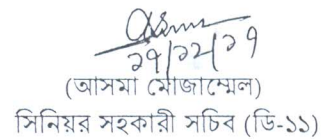 ২৭/১২/১৭
(আসমা মোজাম্মেল)
সিনিয়র সহকারী সচিব (ডি-১১)